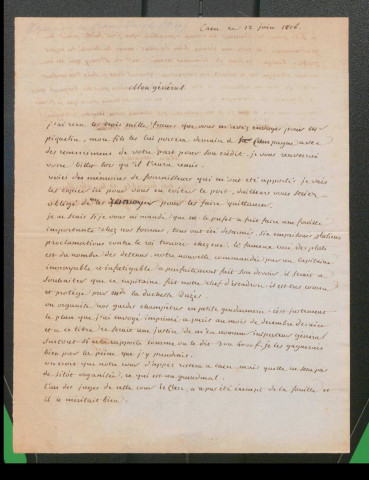 Caen ce 12 juin 1816.
Mon général
j'ai reçu les trois mille francs que vous m'avez envoyés pour
piquetin, mon fils les lui portera demain à la Campagne, avec
des remerciemens de votre part pour son crédit. je vous renverrai
votre billet lors qu'il l'aura remis.
voici des mémoires de fournisseurs qui m'ont été apportés. je vais
les copier ici pour vous en éviter le port, d'ailleurs vous seriez
obligé de me les renvoyer pour les faire quittancer.
je ne sais si je vous ai mandé que le préfet a fait faire une fouille
importante chez nos
proclamations contre le roi trouvées chez eux. le fameux
est du nombre des détenus. notre nouvelle commandée par un capitaine
impayable et infatigable a parfaitement fait son devoir. il serait à
souhaiter que ce capitaine fut notre chef d'escadron. il est bas normand
et protégé par Mde la duchesse
on organise nos gardes champêtres en petite gendarmerie. c'est justement
le plan que j'ai envoyé imprimé à paris au mois de décembre dernier
et à ce titre ce serait une justice de m'en nommer inspecteur général
surtout si cela rapporte comme on le dit je les gagnerais
bien par les peines que j'y prendrais.
on croit que notre cour d'appel restera à caen, mais qu'elle ne sera pas
de sitôt organisée, ce qui est un grand mal.
L'un des juges de cette cour le Clerc, n'a pas été exempt de la fouille et
il le méritait bien.